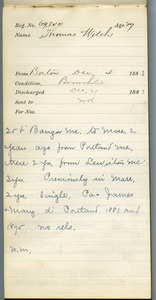 Reg. No. Age 29
Name Thomas Welch
From Boston Dec. 188
Condition, Bronchitis
Discharged Dec. 21 188
Sent to
For Nos.
Bangor Me. to Mass. 2
years ago from Portland Me,
there 2 yrs from Lewiston Me
2 yrs. Previously in Mass.
2 yrs, Single, Pa James
Mary d. Portland 1881 and
no rels.